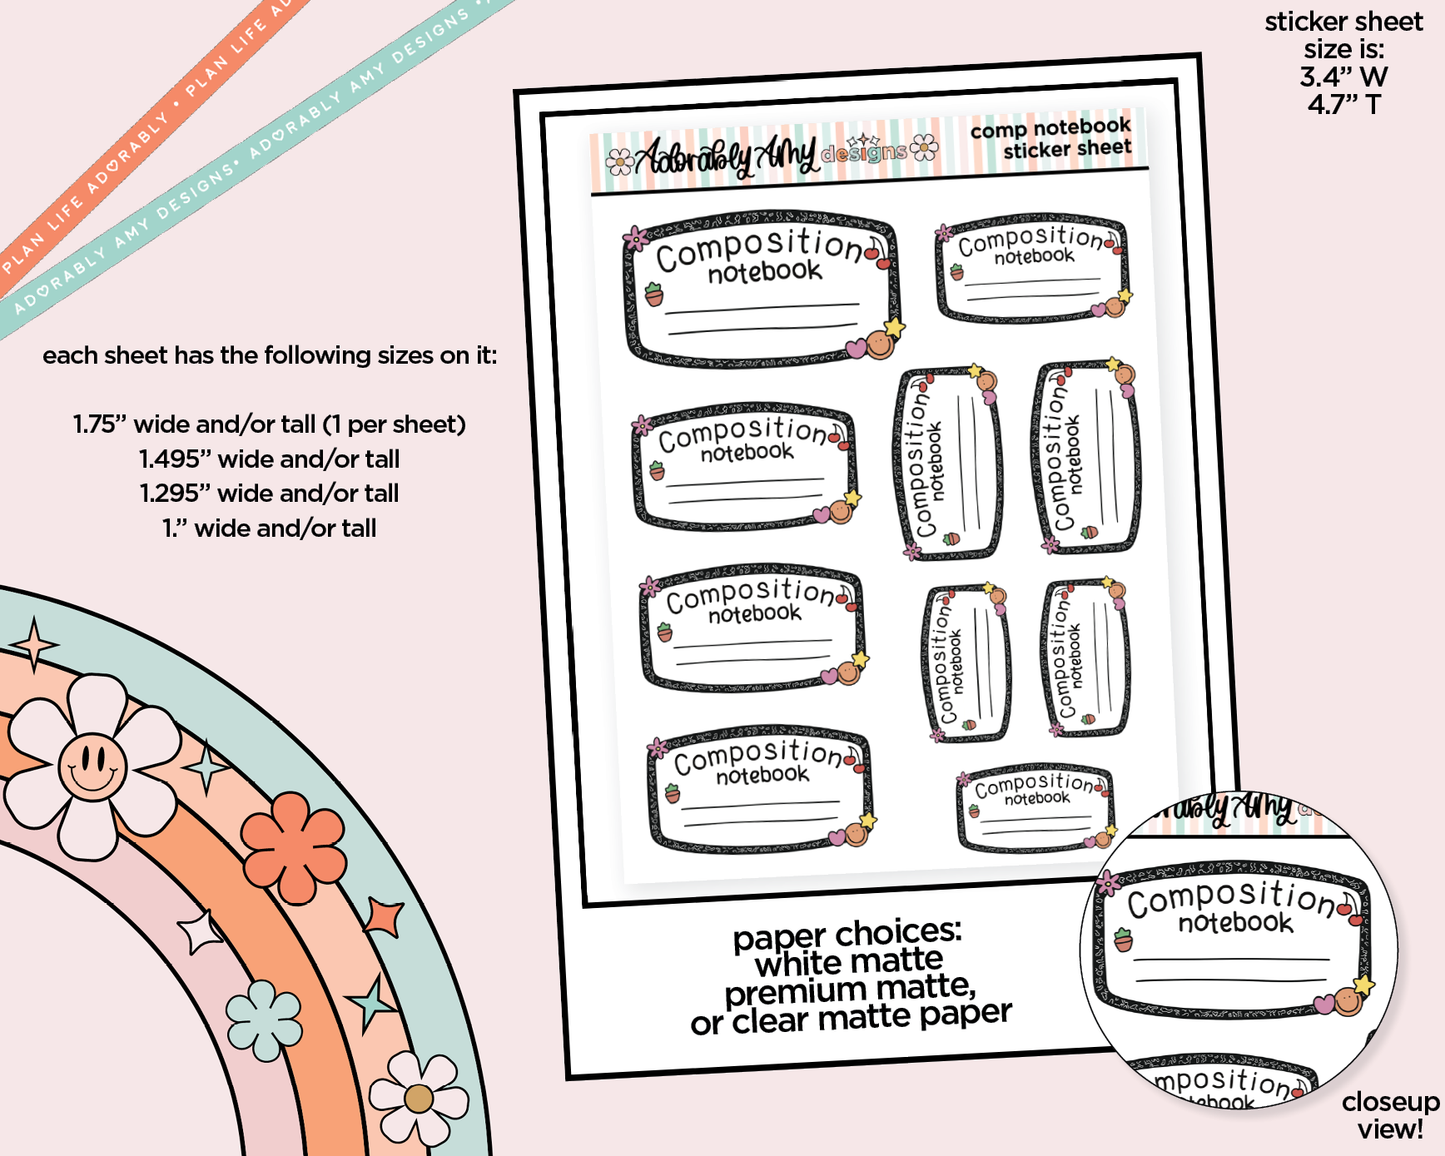 PLAN LIFE ADORABLY • PLAN LIFE AD
ADORABLY AMY DESIGNS* ADORABLY AMY DESIGNS *
sticker sheet
size is:
3.4” W
4.7” T
each sheet has the following sizes on it:
1.75” wide and/or tall (1 per sheet)
1.495” wide and/or tall
1.295” wide and/or tall
1.” wide and/or tall
Adorably Amy designs
comp notebook
sticker sheet
Composition
notebook
Composition
notebook
Composition
notebook
Composition
notebook
Composition
notebook
Composition
notebook
Composition
notebook
Composition
notebook
Composition
notebook
Composition
notebook
paper choices:
white matte
premium matte,
or clear matte paper
rably Amy de
Composition
notebook
mposition
tebook
closeup
view!